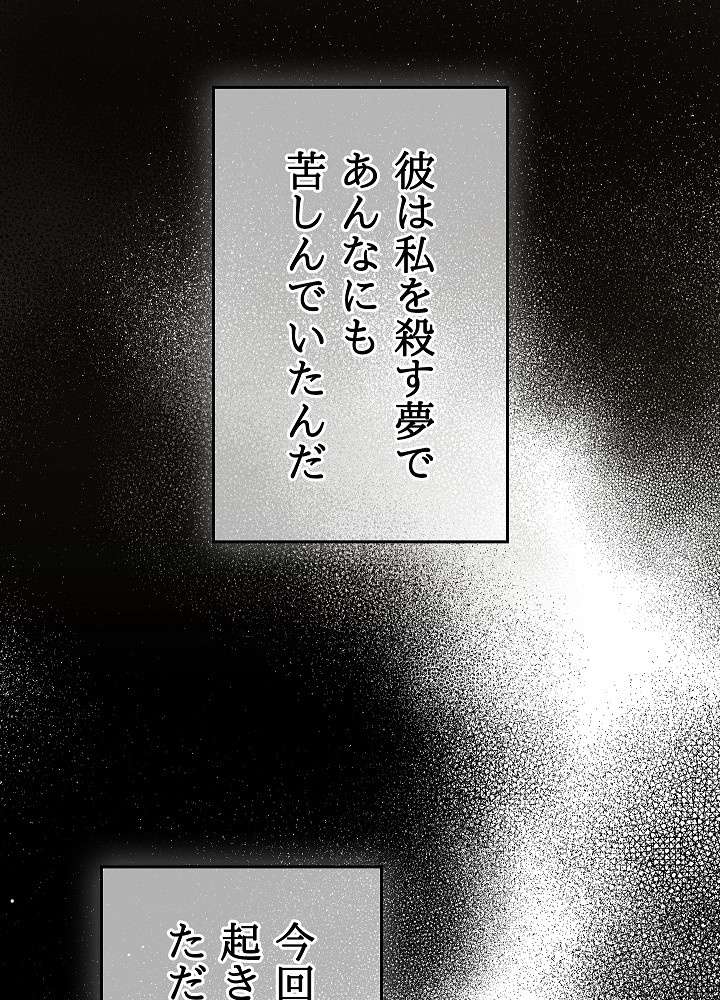 彼は私を殺す夢で
あんなにも
苦しんでいたんだ
今回
起き
ただ